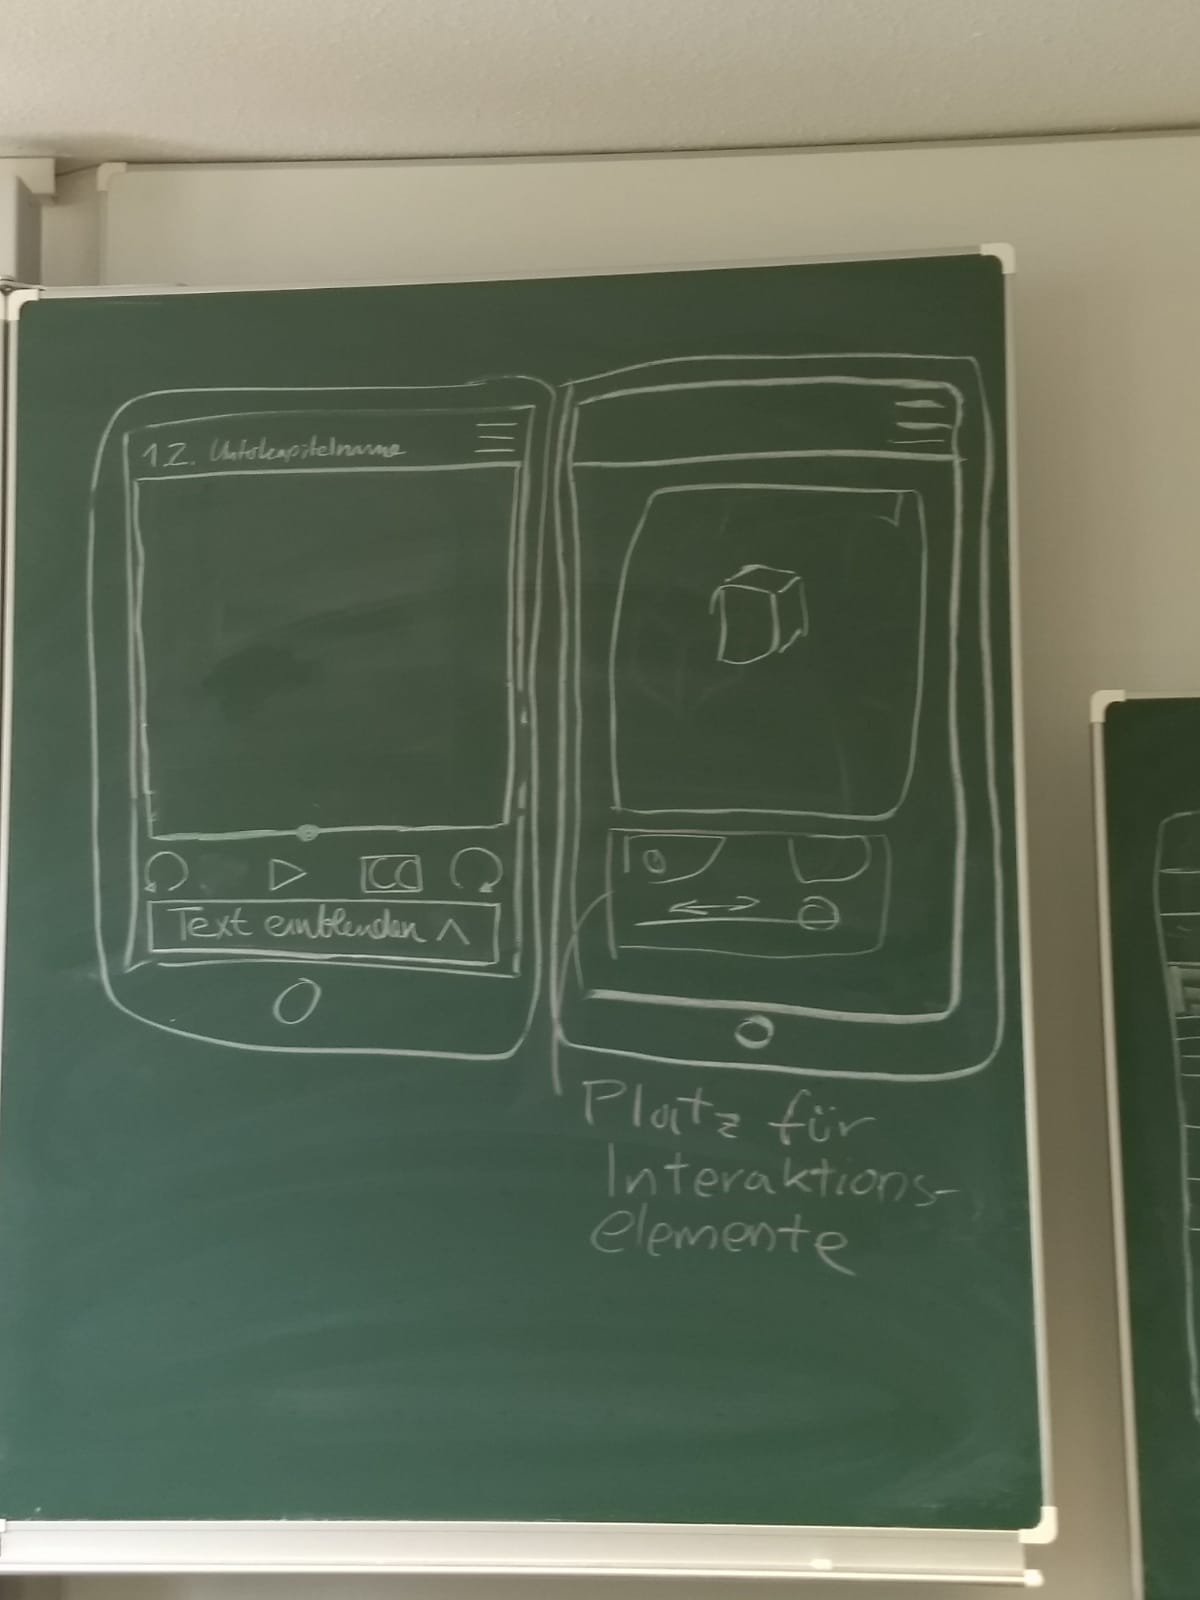 1.2. Unterkapitelname
CC
Text einblenden ^
Platz für
Interaktions-
elemente